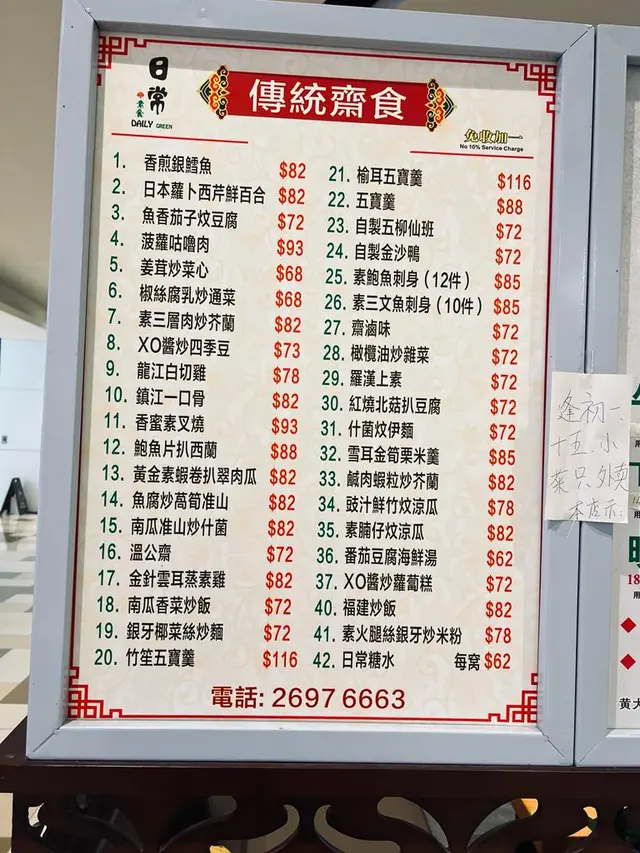 日常
素食
DAILY GREEN
傳統齋食
免收加一
No 10% Service Charge
1. 香煎銀鱈魚 $82
2. 日本蘿卜西芹鮮百合 $82
3. 魚香茄子炆豆腐 $72
4. 菠蘿咕嚕肉 $93
5. 姜茸炒菜心 $68
6. 椒絲腐乳炒通菜 $68
7. 素三層肉炒芥蘭 $82
8. XO醬炒四季豆 $73
9. 龍江白切雞 $78
10. 鎮江一口骨 $82
11. 香蜜素叉燒 $93
12. 鮑魚片扒西蘭 $88
13. 黃金素蝦卷扒翠肉瓜 $82
14. 魚腐炒萵筍准山 $82
15. 南瓜准山炒什菌 $82
16. 溫公齋 $72
17. 金針雲耳蒸素雞 $82
18. 南瓜香菜炒飯 $72
19. 銀牙椰菜絲炒麵 $72
20. 竹笙五寶羹 $116
21. 榆耳五寶羹 $116
22. 五寶羹 $88
23. 自製五柳仙班 $72
24. 自製金沙鴨 $72
25. 素鮑魚刺身（12件） $85
26. 素三文魚刺身（10件） $85
27. 齋滷味 $72
28. 橄欖油炒雜菜 $72
29. 羅漢上素 $72
30. 紅燒北菇扒豆腐 $72
31. 什菌炆伊麵 $72
32. 雪耳金筍粟米羹 $85
33. 鹹肉蝦粒炒芥蘭 $82
34. 豉汁鮮竹炆涼瓜 $78
35. 素腩仔炆涼瓜 $82
36. 番茄豆腐海鮮湯 $62
37. XO醬炒蘿蔔糕 $72
40. 福建炒飯 $82
41. 素火腿絲銀牙炒米粉 $78
42. 日常糖水 每窝 $62
電話: 2697 6663
逢初一、
十五、小
菜只外卖
本店示: